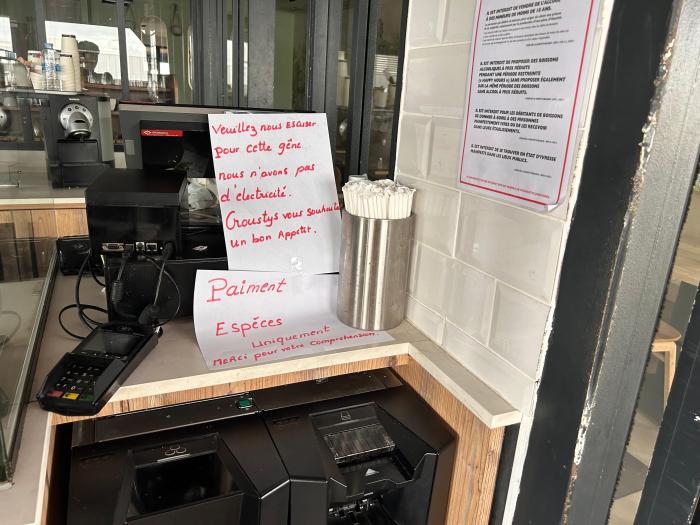 Veuillez nous excuser
pour cette gêne
nous n'avons pas
d'électricité.
Croustys vous souhaite
un bon Appetit.
Paiment
Espèces
Uniquement
Merci pour votre Comprehension
IL EST INTERDIT DE VENDRE DE L'ALCOOL
À DES MINEURS DE MOINS DE 18 ANS.
IL EST INTERDIT DE PROPOSER DES BOISSONS
ALCOOLIQUES À PRIX RÉDUITS
PENDANT UNE PÉRIODE RESTREINTE
(« HAPPY HOURS ») SANS PROPOSER ÉGALEMENT
SUR LA MÊME PÉRIODE DES BOISSONS
SANS ALCOOL À PRIX RÉDUITS.
IL EST INTERDIT POUR LES DÉBITANTS DE BOISSONS
DE DONNER À BOIRE À DES PERSONNES
MANIFESTEMENT IVRES OU DE LES RECEVOIR
DANS LEURS ÉTABLISSEMENTS.
IL EST INTERDIT DE SE TROUVER EN ÉTAT D'IVRESSE
MANIFESTE DANS LES LIEUX PUBLICS.